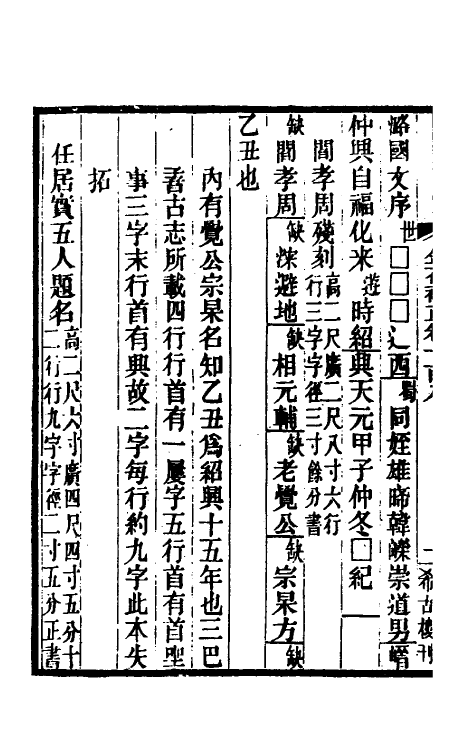 二 希古樓刊
潞國文序世□□□辶西蜀同姪雄啼韓皪崇道男
仲興自福化來遊時紹興天元甲子仲冬□紀
閻孝周殘刻高二尺廣二尺八寸六行
行三字字徑三寸餘分書
缺閻孝周缺淶避地缺相元輔缺老覺公缺宗杲方缺
乙丑也
內有覺公宗杲名知乙丑爲紹興十五年也三巴
耆古志所載四行行首有一屢字五行首有首聖
事三字末行首有興故二字每行約九字此本失
拓
任居實五人題名高二尺六寸廣四尺四寸五分十
二行行九字字徑二寸五分正書